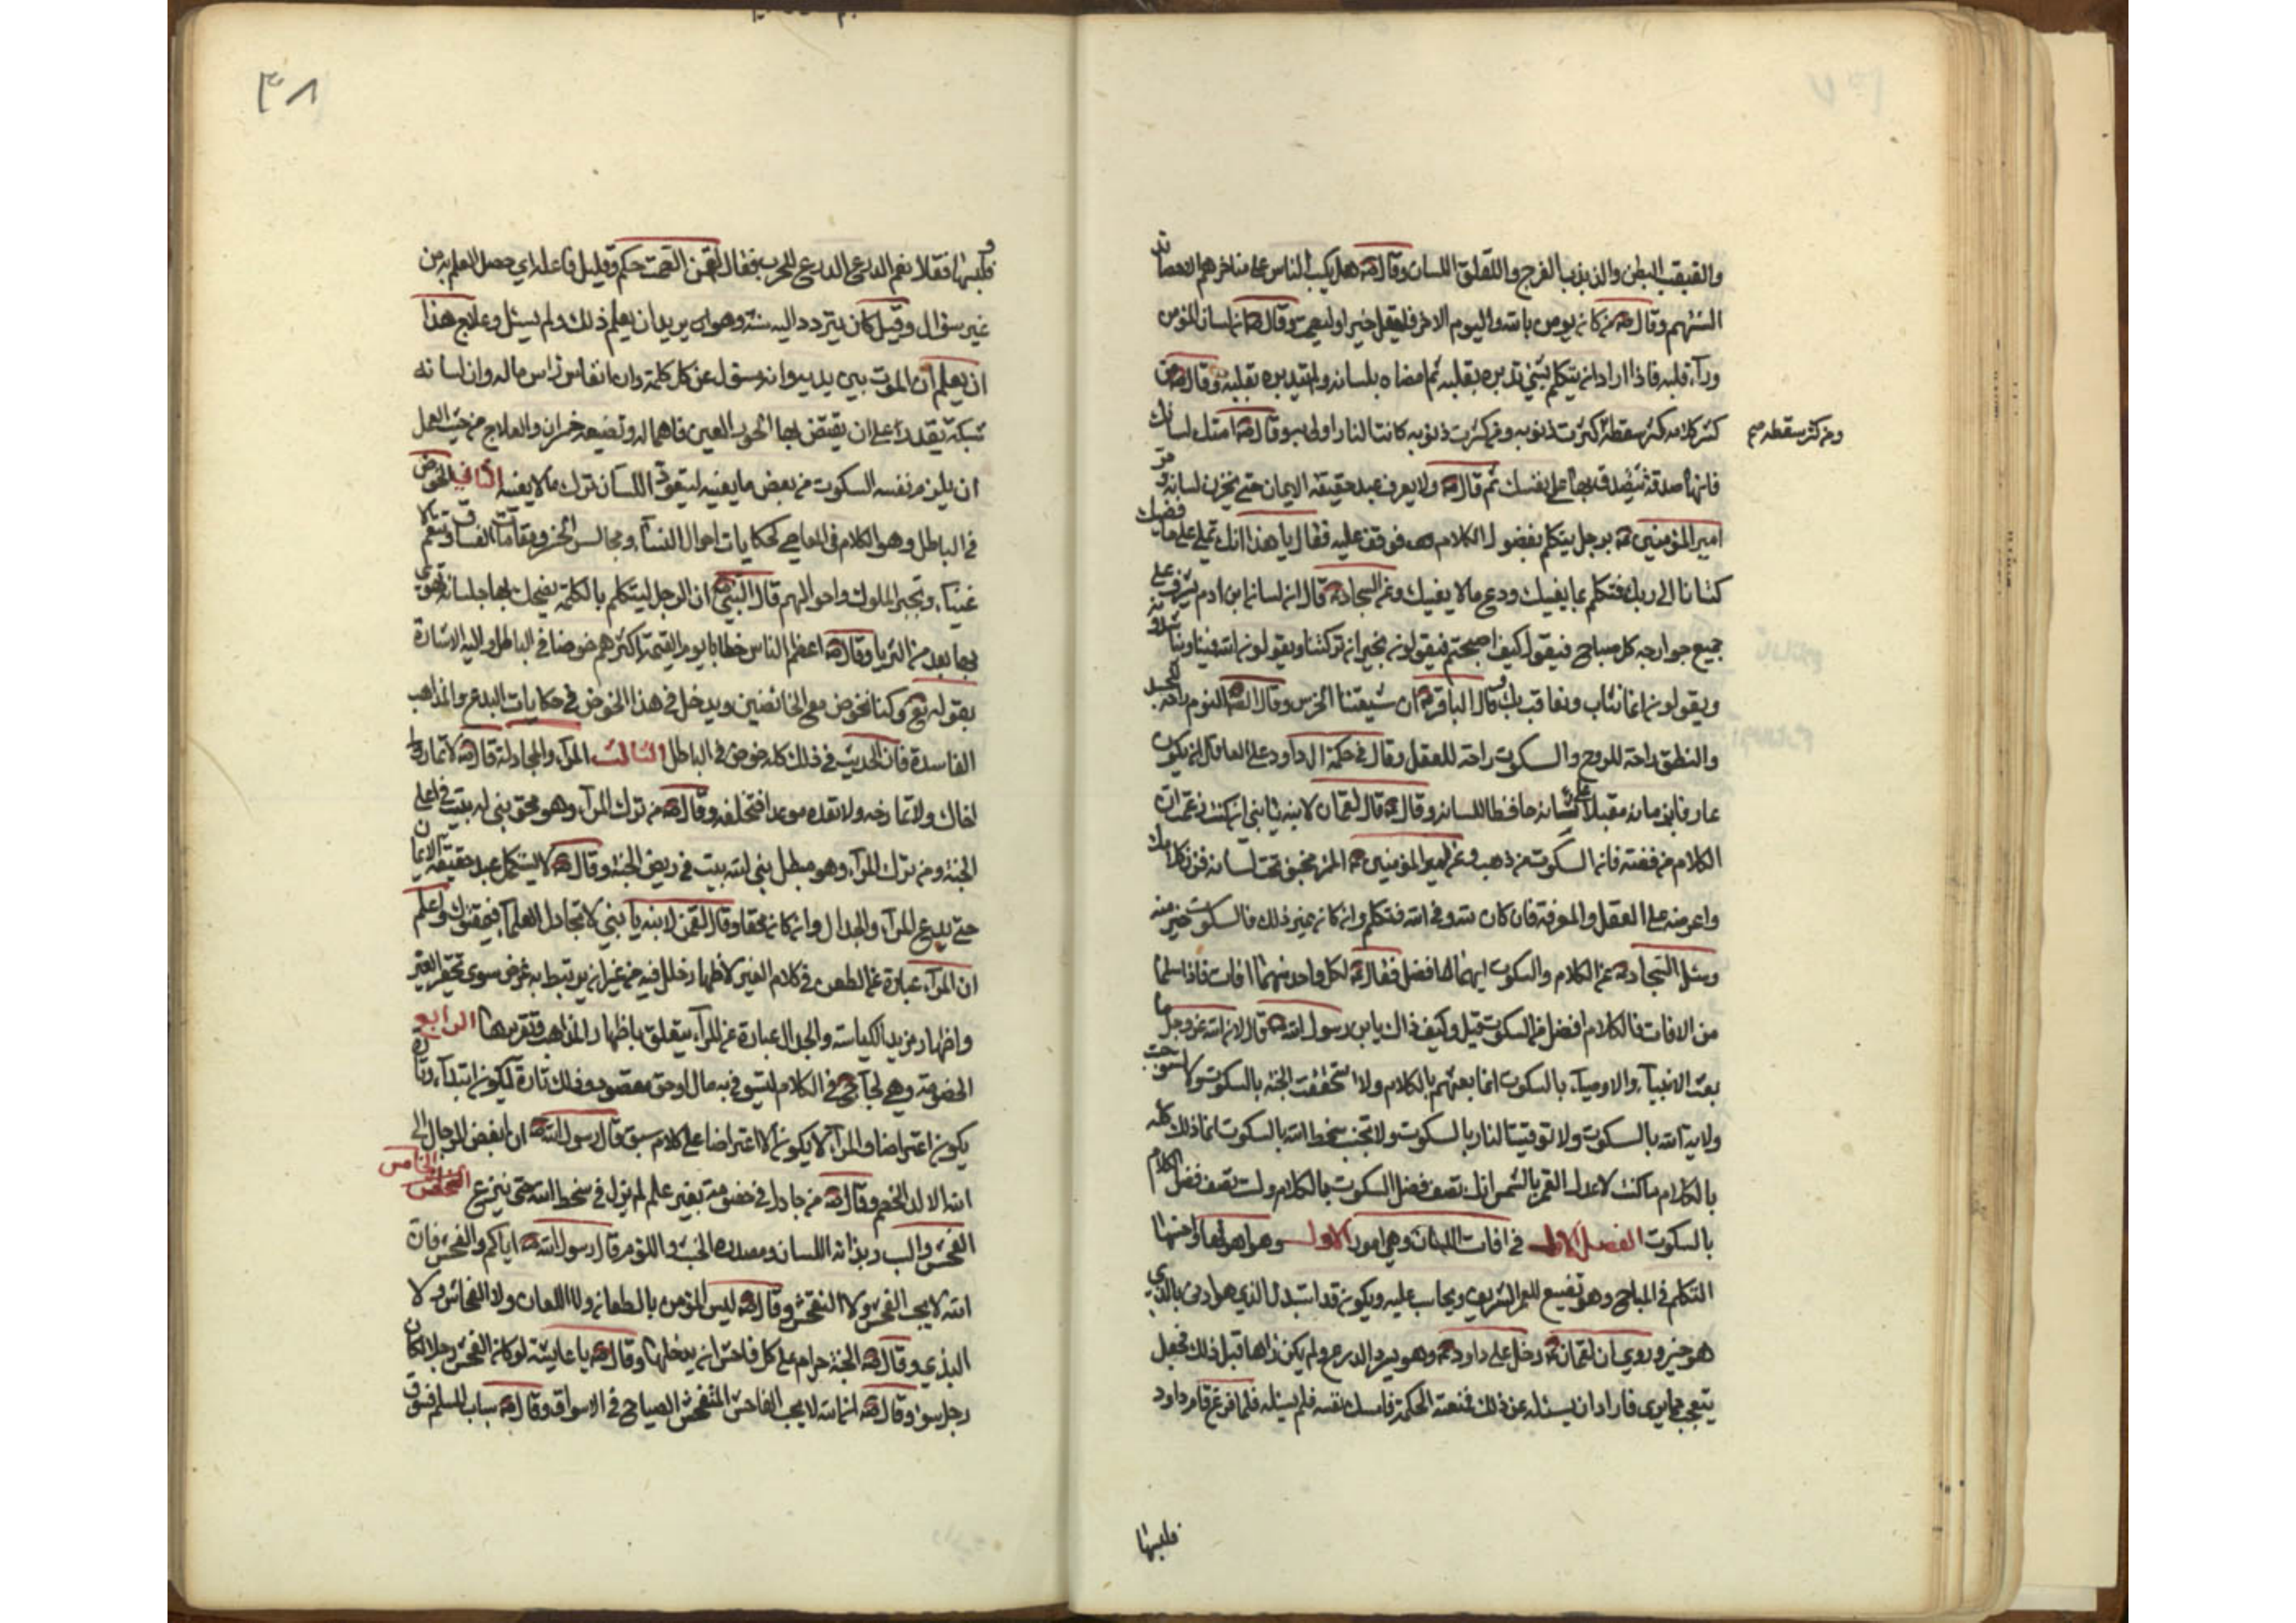 والقبقب البطن والذبذب الفرج واللقلق اللسان وقال ص هل يكب الناس على مناخرهم الا حصائد
السنتهم وقال ص من كان يومن بالله واليوم الاخر فليقل خيرا او ليصمت وقال ص ان لسان المؤمن
ورآء قلبه فاذا اراد ان يتكلم بشئ تدبره بقلبه ثم امضاه بلسانه ولم يتدبره بقلبه وقال ص من
كثر كلامه كثر سقطه كثرت ذنوبه ومن كثرت ذنوبه كانت النار اولى به وقال ص امسك لسانك
ومن كثر سقطه صح
فانها صدقة تتصدق بها على نفسك ثم قال ص ولا يعرف عبد حقيقة الايمان حتى يخزن لسانه ومر
امير المؤمنين ع برجل يتكلم بفضول الكلام فوقف عليه فقال يا هذا انك تملي على حافظيك
كتابا الى ربك فتكلم بما يعنيك ودع ما لا يعنيك وعن السجاد ع قال ان لسان ابن ادم يشرف على
جميع جوارحه كل صباح فيقول كيف اصبحتم فيقولون بخير ان تركتنا ويقولون الله الله فينا ويناشدونه
ويقولون انما نثاب ونعاقب بك وقال الباقر ع ان شيعتنا الخرس وقال الص النوم راحة للجسد
والنطق راحة للروح والسكوت راحة للعقل وقال في حكمة ال داود على العاقل ان يكون
عارفا بزمانه مقبلا على شانه حافظا للسانه وقال ع قال لقمان لابنه يا بني ان كنت زعمت ان
الكلام من فضه فان السكوت من ذهب وعن امير المؤمنين ع المرء مخبو تحت لسانه فزن كلامك
واعرضه على العقل والمعرفة فان كان لله وفي الله فتكلم وان كان غير ذلك فالسكوت خير منه
وسئل السجاد ع عن الكلام والسكوت ايهما افضل فقال ع لكل واحد منهما افات فاذا سلما
من الافات فالكلام افضل من السكوت قيل وكيف ذاك يا بن رسول الله ص قال لان الله عز وجل ما
بعث الانبيآء والاوصيآء بالسكوت انما بعثهم بالكلام ولا استحقت الجنة بالسكوت ولا استوجبت
ولاية الله بالسكوت ولا توقيت النار بالسكوت ولا تجنب سخط الله بالسكوت انما ذلك كله
بالكلام ما كنت لاعدل القمر بالشمس انك تصف فضل السكوت بالكلام ولست تصف فضل الكلام
بالسكوت الفصل الاول في افات اللسان وهي امور الاول وهو اهونها واخسها
التكلم في المباح وهو تضييع للعمر الشريف ويحاسب عليه ويكون قد استبدل الذي هو ادنى بالذي
هو خير وروي ان لقمان ع دخل على داود ع وهو يسرد الدرع ولم يكن راها قبل ذلك فجعل
يتعجب مما يرى فاراد ان يسئله عن ذلك فمنعته الحكمة فامسك نفسه فلم يسئله فلما فرغ قام داود
فلبسها
٣٨
ولبسها فقال نعم الدرع الدرع للحرب فقال لقمن الصمت حكم وقليل فاعله اي حصل العلم به من
غير سؤال وقيل كان يتردد اليه سنة وهو يريد ان يعلم ذلك ولم يسئل وعلاج هذا
ان يعلم ان الموت بين يديه وانه مسئول عن كل كلمة وان انفاس راس ماله وان لسانه
شبكة يقدر على ان يقتنص بها الحور العين فاهماله وتضييعه خسران والعلاج من حيث العمل
ان يلزم نفسه السكوت من بعض ما يعنيه ليتعود اللسان ترك ما لا يعنيه الثاني الخوض
في الباطل وهو الكلام في المعاصي كحكايات احوال النسآء ومجالس الخمر ومقامات الفساق وتنعم الا
غنياء وتجبر الملوك واحوالهم قال النبي ص ان الرجل ليتكلم بالكلمة يضحك بها جلسائه يهوي
بها ابعد من الثريا وقال ص اعظم الناس خطايا يوم القيمة اكثرهم خوضا في الباطل واليه الاشارة
بقوله تع وكنا نخوض مع الخائضين ويدخل في هذا الخوض في حكايات البدع والمذاهب
الفاسدة فان الحديث في ذلك كله خوض في الباطل الثالث المرآء والمجادلة قال ص لا تمار
اخاك ولا تمازحه ولا تعده موعدا فتخلفه وقال ص من ترك المرآء وهو محق بني له بيت في اعلى
الجنة ومن ترك المرآء وهو مبطل بني له بيت في ربض الجنة وقال ص لا يستكمل عبد حقيقة الايمان
حتى يدع المرآء والجدال وان كان محقا وقال لقمن لابنه يا بني لا تجادل العلمآء فيمقتوك واعلم
ان المرآء عبارة عن الطعن في كلام الغير لاظهار خلل فيه من غير ان يرتبط به غرض سوى تحقير الغير
واظهار مزيد الكياسة والجدال عبارة عن المرآء يتعلق باظهار المذاهب وتقريرها الرابع
الخصومة وهي لجاج في الكلام ليستوفي به مال او حق مقصود وذلك تارة يكون ابتدآء وتارة
يكون اعتراضا والمرآء لا يكون الا اعتراضا على كلام سبق قال رسول الله ص ان ابغض الرجال الى
الله الالد الخصم وقال ص من جادل في خصومة بغير علم لم يزل في سخط الله حتى ينزع الخامس الفحش
الفحش والسب وبذائة اللسان ومصدره الخبث واللؤم قال رسول الله ص اياكم والفحش فان
الله لا يحب الفحش ولا التفحش وقال ص ليس المؤمن بالطعان ولا اللعان ولا الفحاش ولا
البذي وقال ص الجنة حرام على كل فاحش ان يدخلها وقال ص يا عايشة لو كان الفحش رجلا لكان
رجل سوء وقال ص ان الله لا يحب الفاحش المتفحش الصياح في الاسواق وقال ص سباب المسلم فسوق